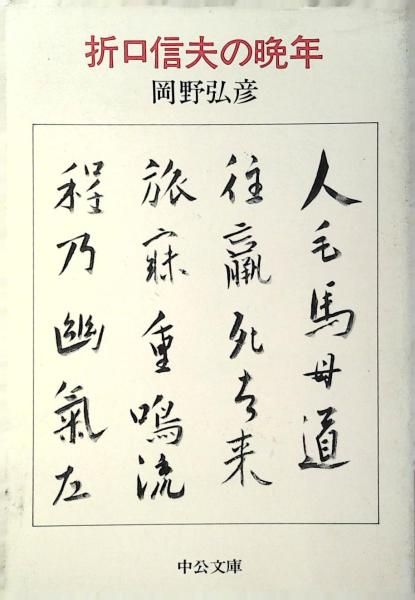 折口信夫の晩年
岡野弘彦
人毛馬母道
往羸死去来
旅寐重鳴流
程乃幽氣左
中公文庫